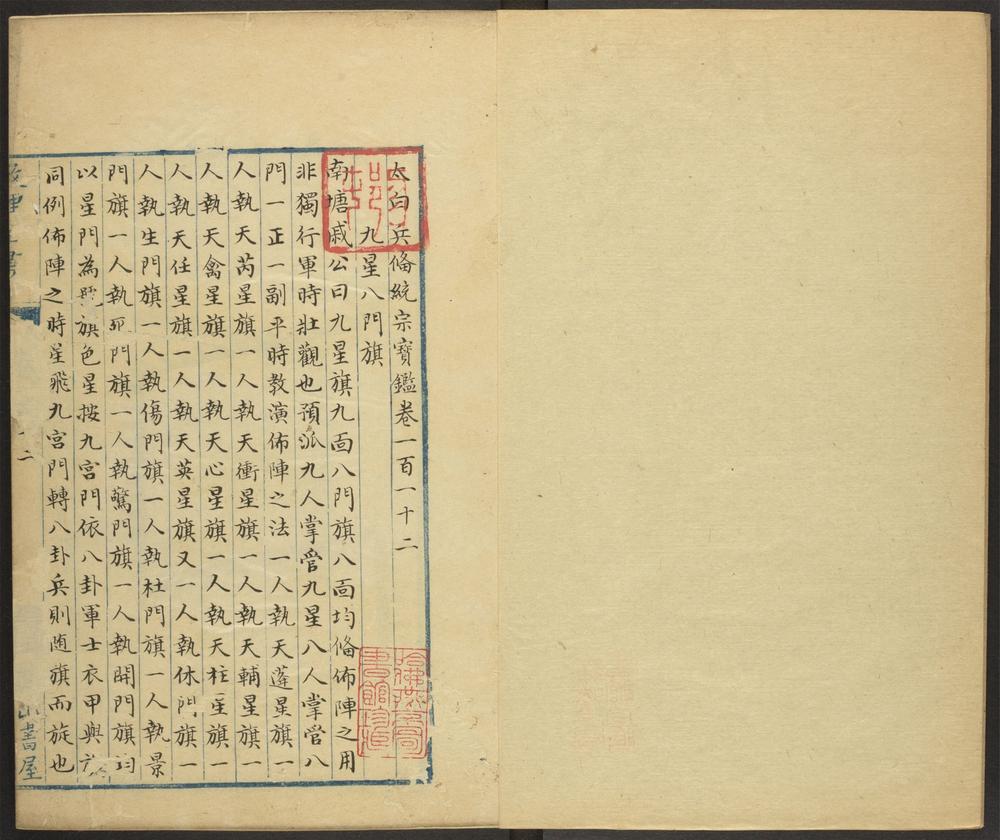 太白兵備統宗寶鑑卷一百一十二
九星八門旗
南塘戚公曰九星旗九面八門旗八面均備佈陣之用
非獨行軍時壯觀也預派九人掌管九星八人掌管八
門一正一副平時教演佈陣之法一人執天蓬星旗一
人執天芮星旗一人執天衝星旗一人執天輔星旗一
人執天禽星旗一人執天心星旗一人執天柱星旗一
人執天任星旗一人執天英星旗又一人執休門旗一
人執生門旗一人執傷門旗一人執杜門旗一人執景
門旗一人執死門旗一人執驚門旗一人執開門旗均
以星門為號旗色星按九宮門依八卦軍士衣甲與
同例佈陣之時星飛九宮門轉八卦兵則随旗而旋也
二
山書屋
哈佛燕京圖書館珍藏